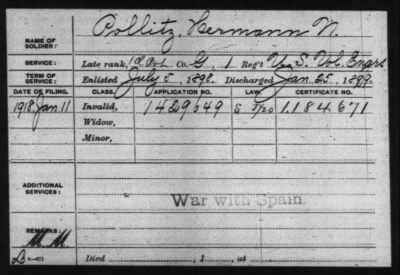 Pollitz, Hermann N.
NAME OF SOLDIER:
SERVICE: Late rank, Co. G, 1 Reg't U.S. Vol. Engrs
TERM OF SERVICE: Enlisted July 5, 1898. Discharged Jan. 25, 1899.
DATE OF FILING. CLASS. APPLICATION NO. LAW. CERTIFICATE NO.
1918, Jan. 11 Invalid, 1429649 1,184,671
Widow,
Minor,
ADDITIONAL SERVICES:
War with Spain.
REMARKS:
Died , 1 , at